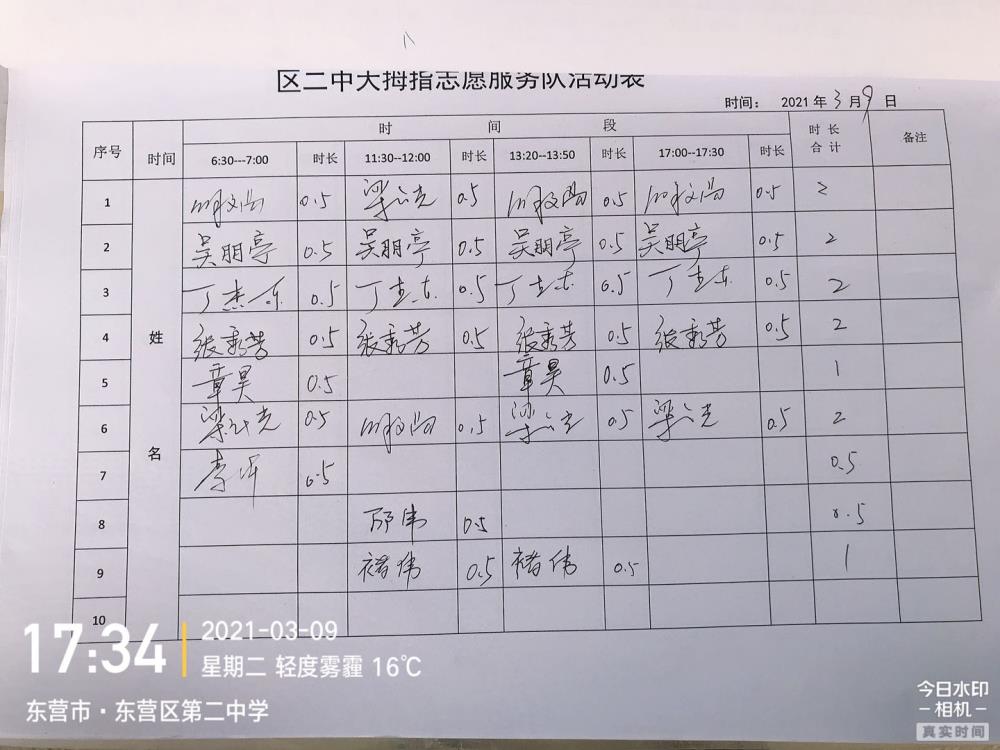 区二中大拇指志愿服务队活动表
时间： 2021 年 3 月 9 日
序号 时间 时 间 段 时长合计 备注
6:30---7:00 时长 11:30--12:00 时长 13:20--13:50 时长 17:00--17:30 时长
姓名
1 0.5 0.5 0.5 0.5 2
2 吴朋亭 0.5 吴朋亭 0.5 吴朋亭 0.5 吴朋亭 0.5 2
3 丁杰东 0.5 丁杰东 0.5 丁杰东 0.5 丁杰东 0.5 2
4 张秀芳 0.5 张秀芳 0.5 张秀芳 0.5 张秀芳 0.5 2
5 章昊 0.5 章昊 0.5 1
6 0.5 0.5 0.5 0.5 2
7 0.5 0.5
8 邵伟 0.5 0.5
9 褚伟 0.5 褚伟 0.5 1
10
17:34
2021-03-09
星期二 轻度雾霾 16℃
东营市·东营区第二中学
今日水印
-相机-
真实时间